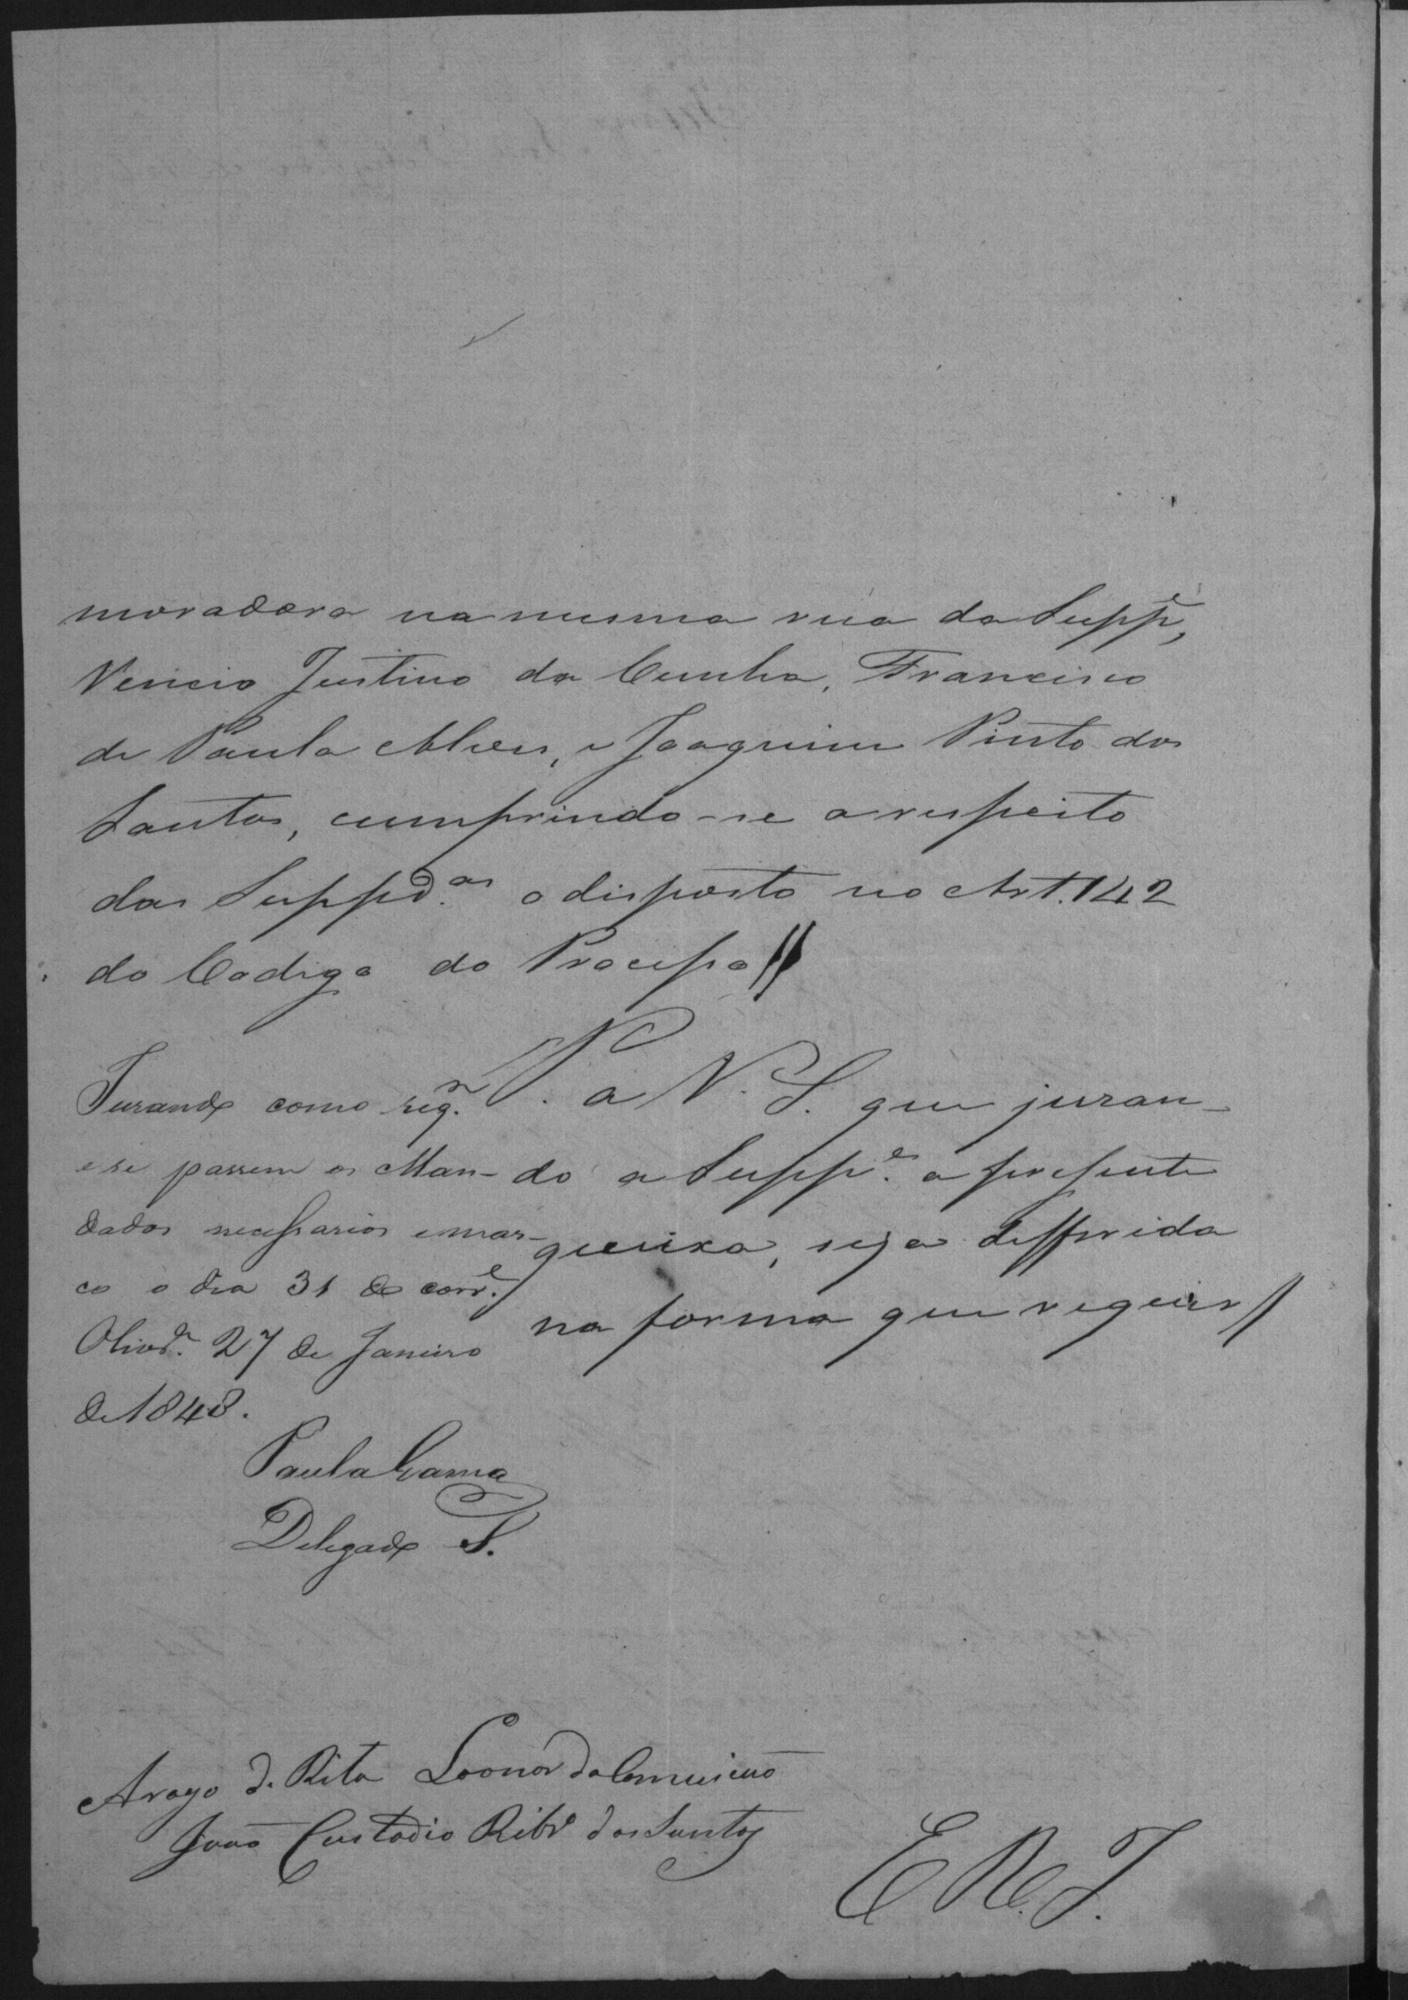 moradora na mesma rua da Suppe,
Vericio Justino da Cunha, Francisco
de Paula Alves, e Joaquim Pinto dos
Santos, cumprindo-se a respeito
das Suppd.as o disposto no Art. 142
do Codigo do Proceſso //
P. a V. S. que juran-
do a Suppe. a preſente
queixa, seja defferida
na forma que requer //
Jurando como reqr.
e se passem os Man-
dados neceſsarios e mar-
co o dia 31 do corre.
Olivdr. 27 de Janeiro
de 1848.
Paula Gama
Delegado S.
Arogo d. Rita Leonor da Comceicaõ
Joaõ Custodio Ribro dos Santos
E. R. J.